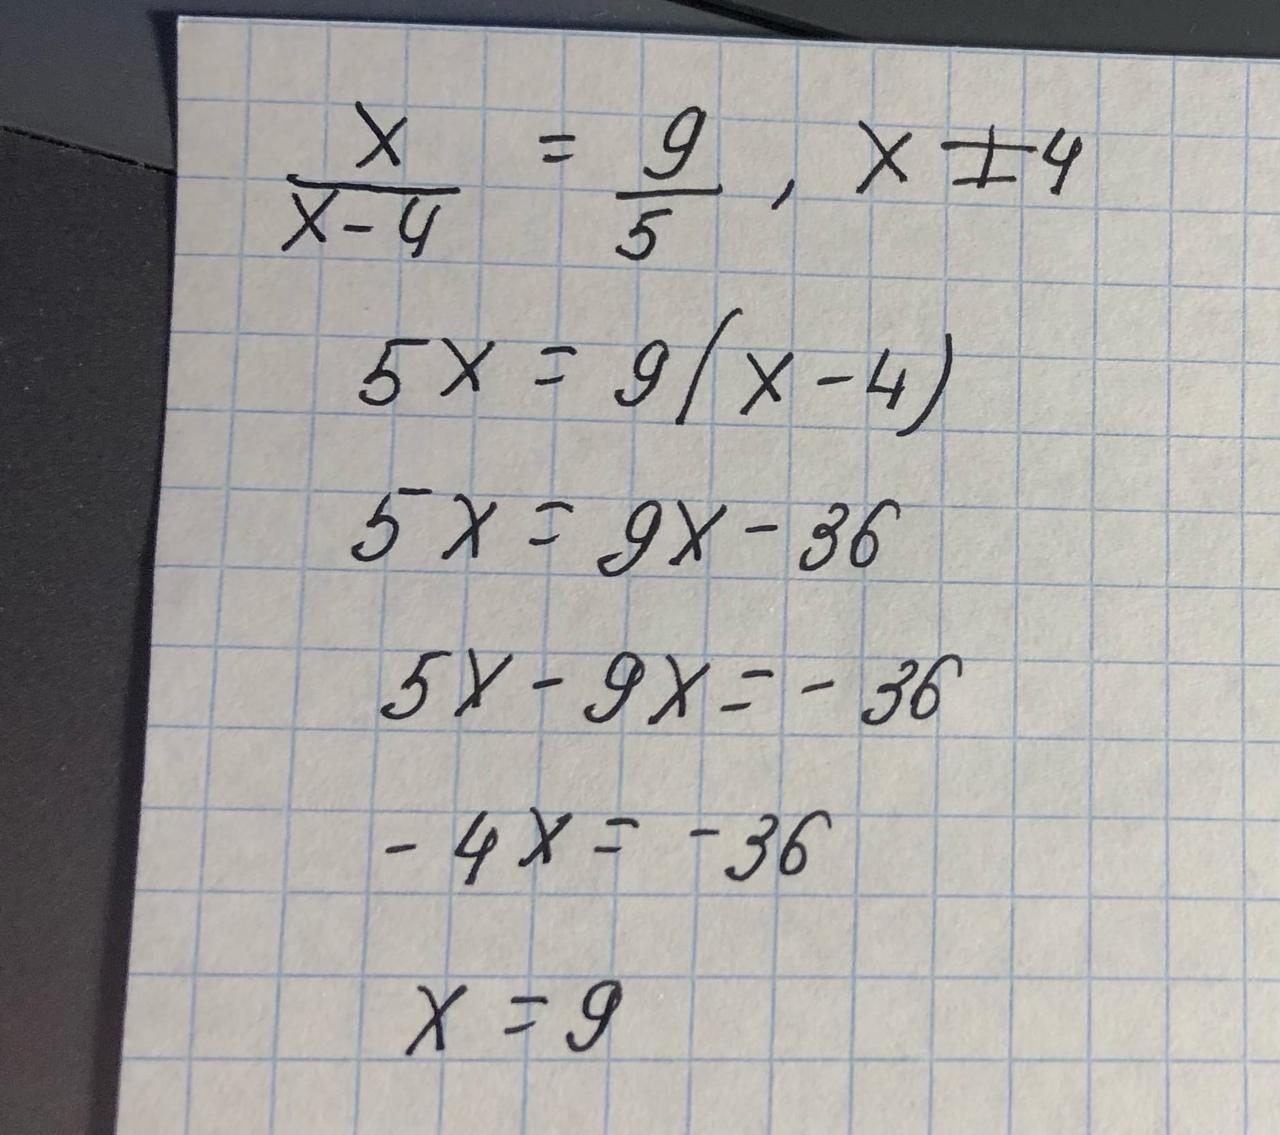 x/(x-4) = 9/5, x ≠ 4
5x = 9(x-4)
5x = 9x - 36
5x - 9x = - 36
- 4x = - 36
x = 9